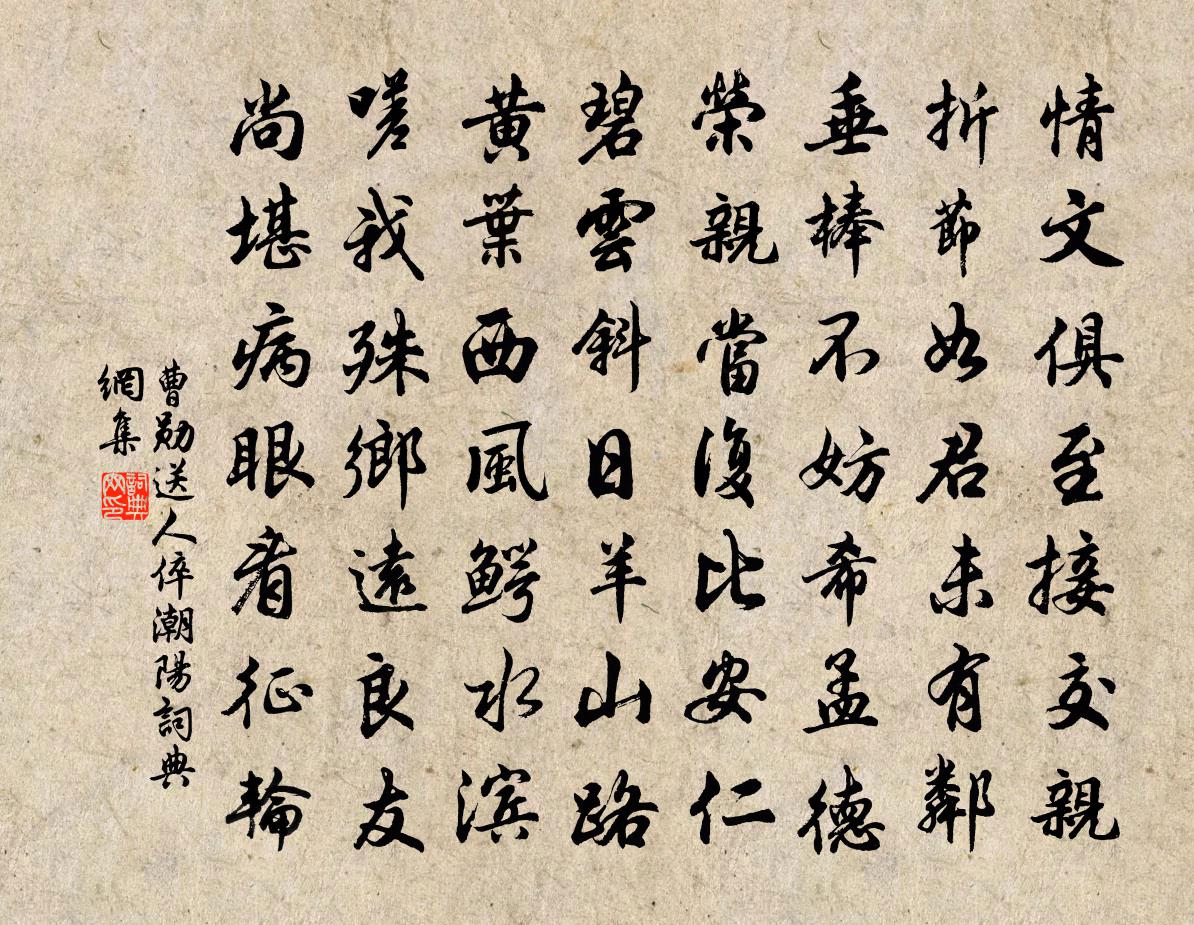 情文俱至接交親
折節如君未有鄰
垂棒不妨希孟德
榮親當復比安仁
碧雲斜日羊山路
黃葉西風鰐水滨
嗟我殊鄉遠良友
尚堪病眼看征輪
曹勛送人倅潮陽詞典
網集
詞典
網印